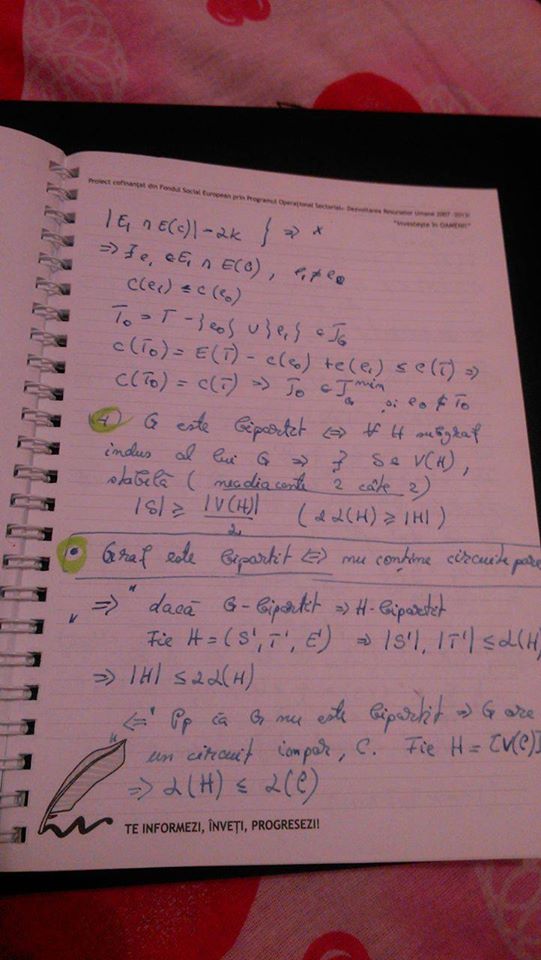 Proiect cofinanțat din Fondul Social European prin Programul Operațional Sectorial Dezvoltarea Resurselor Umane 2007-2013!
"Investește în OAMENI!"
|E₁ ∩ E(C)| - 2k } ⇒ x
⇒ ∃ e₁ ∈ E₁ ∩ E(C), e₁ ≠ e₀
c(e₁) ≤ c(e₀)
T₀ = T - {e₀} ∪ {e₁} ∈ J_G
c(T₀) = E(T) - c(e₀) + c(e₁) ≤ c(T) ⇒
c(T₀) = c(T) ⇒ T₀ ∈ J_G^min și e₀ ∉ T₀
G este bipartit ⇔ ∀ H subgraf
indus al lui G ⇒ ∃ S ⊂ V(H),
stabilă (neadiacente 2 câte 2)
|S| ≥ |V(H)|/2 (2α(H) ≥ |H|)
Graf este bipartit ⇔ nu conține circuite
⇒" dacă G-bipartit ⇒ H-bipartit
Fie H = (S', T', E') ⇒ |S'|, |T'| ≤ α(H)
⇒ |H| ≤ 2α(H)
"⇐" Pp că G nu este bipartit ⇒ G are
un circuit impar, C. Fie H = [V(C)]
⇒ α(H) ≤ α(C)
TE INFORMEZI, ÎNVEȚI, PROGRESEZI!